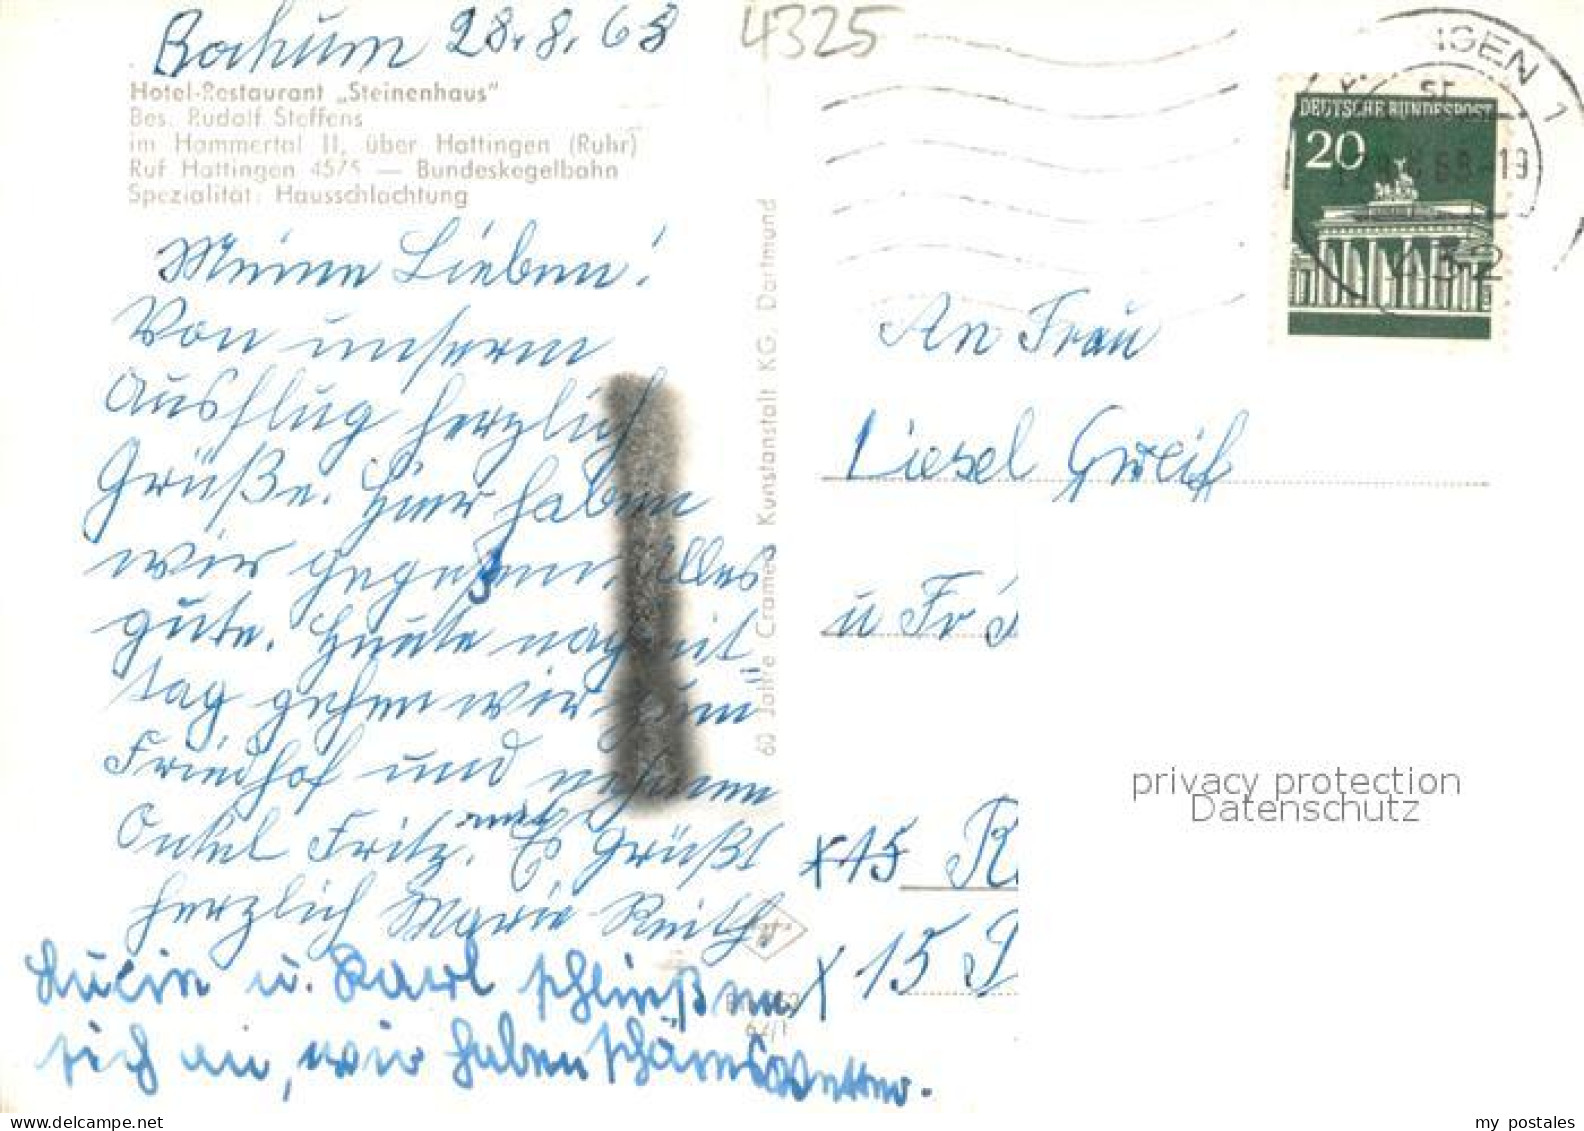 Bochum 28.8.68
4325
Hotel-Restaurant „Steinenhaus"
Bes. Rudolf Steffens
im Hammertal 11, über Hattingen (Ruhr)
Ruf Hattingen 4575 — Bundeskegelbahn
Spezialität: Hausschlachtung
Meine Lieben!
Von unserm
Ausflug herzlich
Grüße. Hier haben
wir gegessen. Alles
gute. Heute nachmit
tag gehen wir zum
Friedhof und nehmen
Onkel Fritz mit. Es Grüßt
herzlich Marie Reith.
Lucie u. Karl schließen
sich an, wir haben schönes Wetter.
60 Jahre Cramers Kunstanstalt KG. Dortmund
INGEN 1
68-19
432
DEUTSCHE BUNDESPOST
20
An Frau
Liesel Greif
u Fr
x 15 R
x 15 S
privacy protection
Datenschutz
my postales